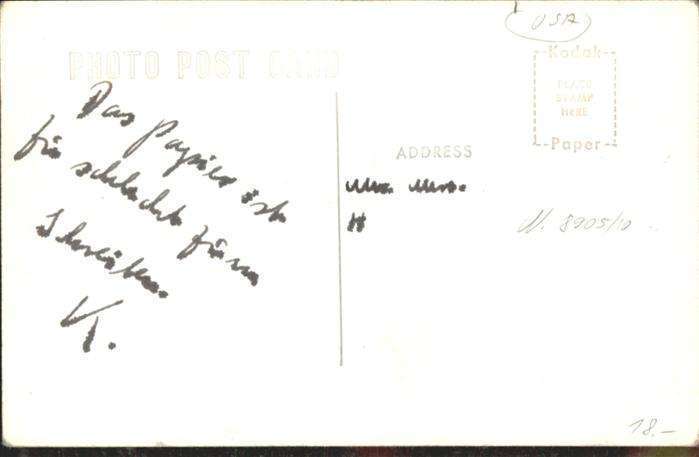 USA
PHOTO POST CARD
Kodak
PLACE
STAMP
HERE
Paper
Das Papier ist
für schlecht zum
Schreiben.
K.
ADDRESS
N. 8905/10
18.-